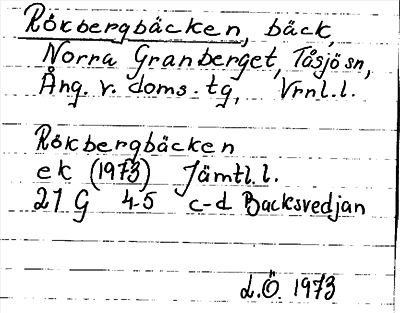 Rökbergbäcken, bäck,
Norra Granberget, Tåsjö sn,
Ång. v. doms. tg, Vrnl.l.
Rökbergbäcken
ek (1973) Jämtl.l.
21 G 4-5 c-d Backsvedjan
L.Ö. 1973